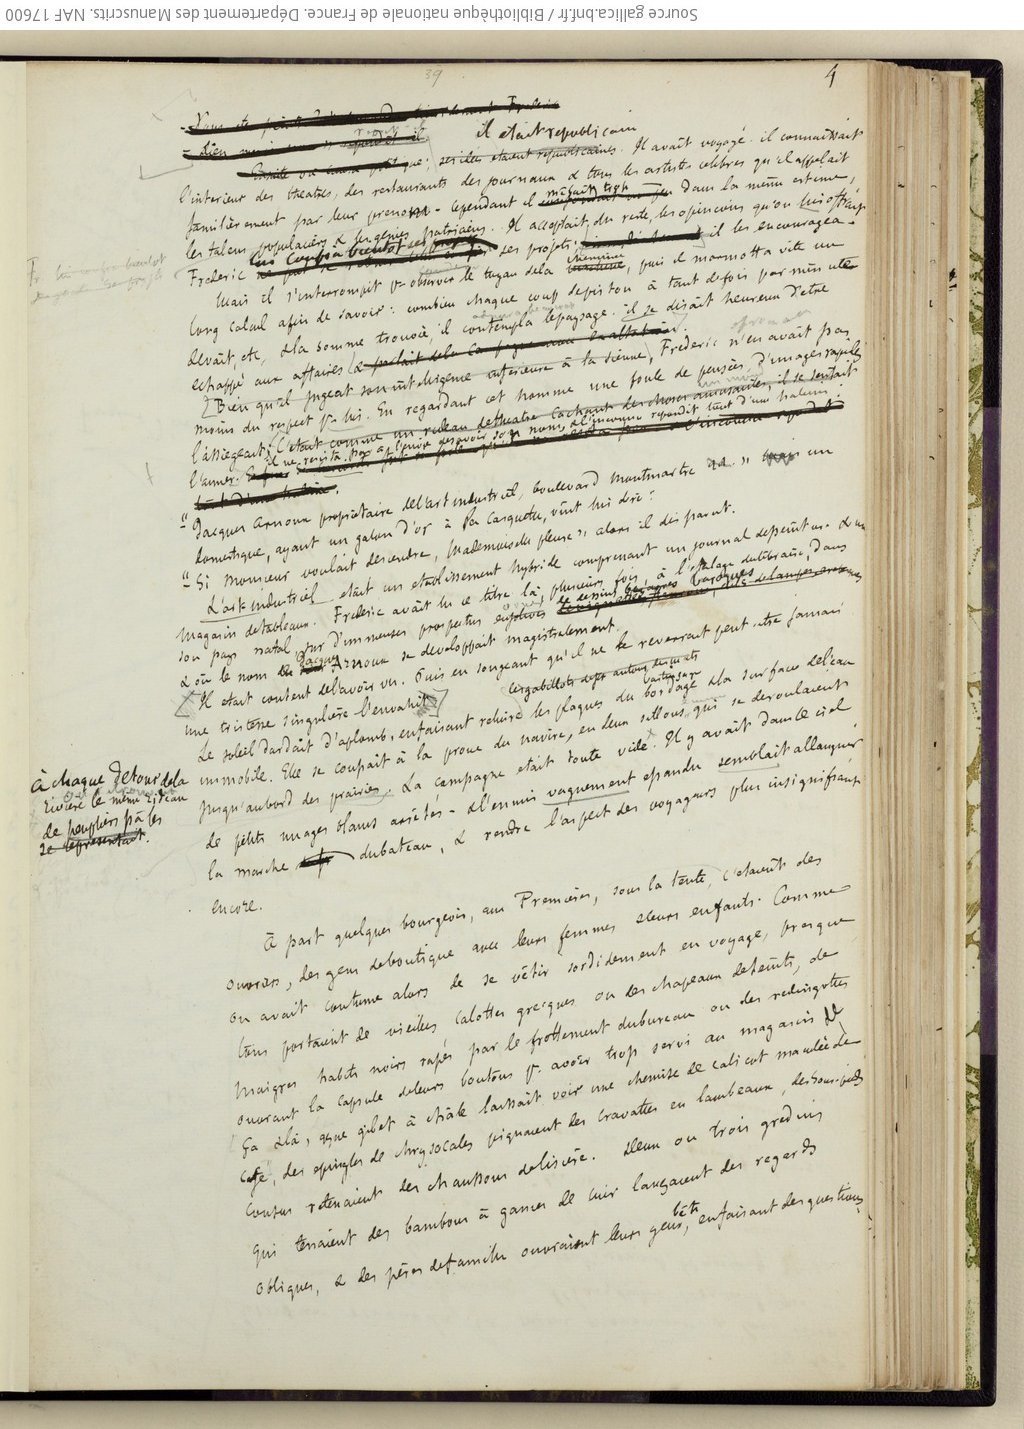 Source gallica.bnf.fr / Bibliothèque nationale de France. Département des Manuscrits. NAF 17600
39
4
il était républicain
ses idées étaient républicaines. Il avait voyagé. il connaissait
l'intérieur des théâtres, des restaurants des journaux & tous les artistes célèbres qu'il appelait
familièrement par leur prenom - cependant il dans la même estime,
les talens populaciers & les génies patriciens. Il acceptait du reste, les opinions qu'on lui offrait
Frederic lui confia bientôt ses projets; il les encouragea.
Mais il s'interrompit pr observer le tuyau de la cheminée, puis il marmotta vite un
long calcul afin de savoir: combien chaque coup de piston à tant de fois par minute
devait, etc, & la somme trouvée, il contempla le paysage. il se disait heureux d'être
échappé aux affaires
Bien qu'il jugeat son intelligence inférieure à la sienne, Fréderic n'en avait pas
moins du respect pr lui. En regardant cet homme une foule de pensées, d'images rapides
l'assiegeant, c'était comme un rideau de theatre cachant des choses amusantes, il se sentait
l'aimer. il ne resista pas à l'envie de savoir son nom, & l'inconnu repondit tout d'une haleine:
"Jacques Arnoux propriétaire de l'art industriel, boulevard Montmartre" un
domestique, ayant un galon d'or à la casquette, vint lui dire:
"Si Monsieur voulait descendre, Mademoiselle pleure" alors il disparut.
L'art industriel était un établissement hybride comprenant un journal de peinture & un
magasin de tableaux. Frederic avait lu ce titre là, plusieurs fois, à l'étalage du libraire, dans
son pays natal, sur d'immenses prospectus
& où le nom de Jacques Arnoux se développait magistralement.
Il était content de l'avoir vu. Puis en songeant qu'il ne le reverrait peut-être jamais
une tristesse singulière l'envahit
les gabillots de fer autour des mâts
Le soleil dardait d'aplomb, en faisant reluire les plaques du bordage & la surface de l'eau
immobile. Elle se coupait à la proue du navire, en deux sillons, qui se déroulaient
jusqu'au bord des prairies. La campagne était toute vide. Il y avait dans le ciel
de petits nuages blancs arrêtés - & l'ennui vaguement épandu semblait allanguir
la marche du bateau, & rendre l'aspect des voyageurs plus insignifiant
encore.
À chaque détour de la
rivière le même rideau
de peupliers pâles
se représentait.
À part quelques bourgeois, aux Premières, sous la tente, c'étaient des
ouvriers, des gens de boutique avec leurs femmes & leurs enfants. Comme
on avait coutume alors de se vêtir sordidement en voyage, presque
tous portaient de vieilles calottes grecques ou des chapeaux deteints, de
maigres habits noirs rapés par le frottement du bureau ou des redingottes
ouvrant la capsule de leurs boutons pr avoir trop servi au magasin
ça & là, quelque gilet à châle laissait voir une chemise de calicot maculée de
café, des epingles de chrysocales piquaient des cravattes en lambeaux, des sous-pieds
cousus retenaient des chaussons de lisière. Deux ou trois gredins
qui tenaient des bambous à ganses de cuir lançaient des regards
obliques, & des pères de famille ouvraient leurs yeux, en faisant des questions